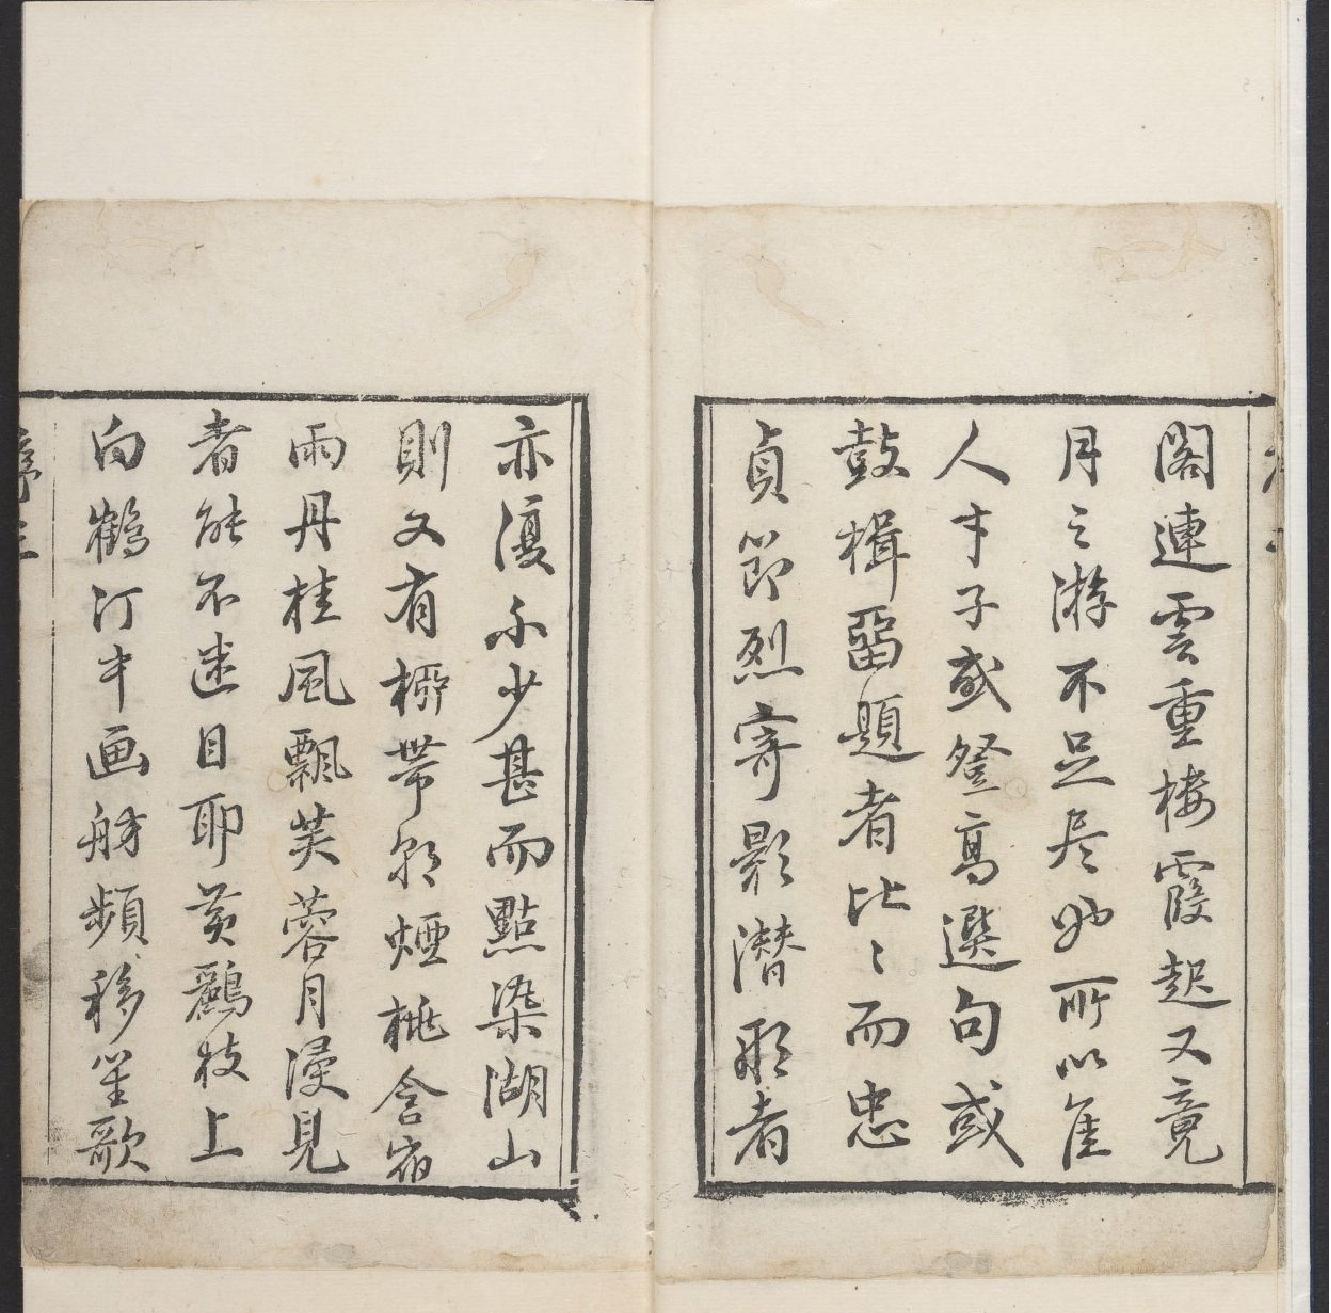 閣連雲重樓霞起又竟
月之游不足尽也所以隹
人才子或登高選句或
鼓楫畱題者比〻而忠
貞節烈寄影潜形者
亦復不少甚而點染湖山
則又有栁帶朝煙桃含宿
雨丹桂風飄芙蓉月浸見
者能不迷目耶黃鸝枝上
白鶴汀中画舫頻移笙歌
序三